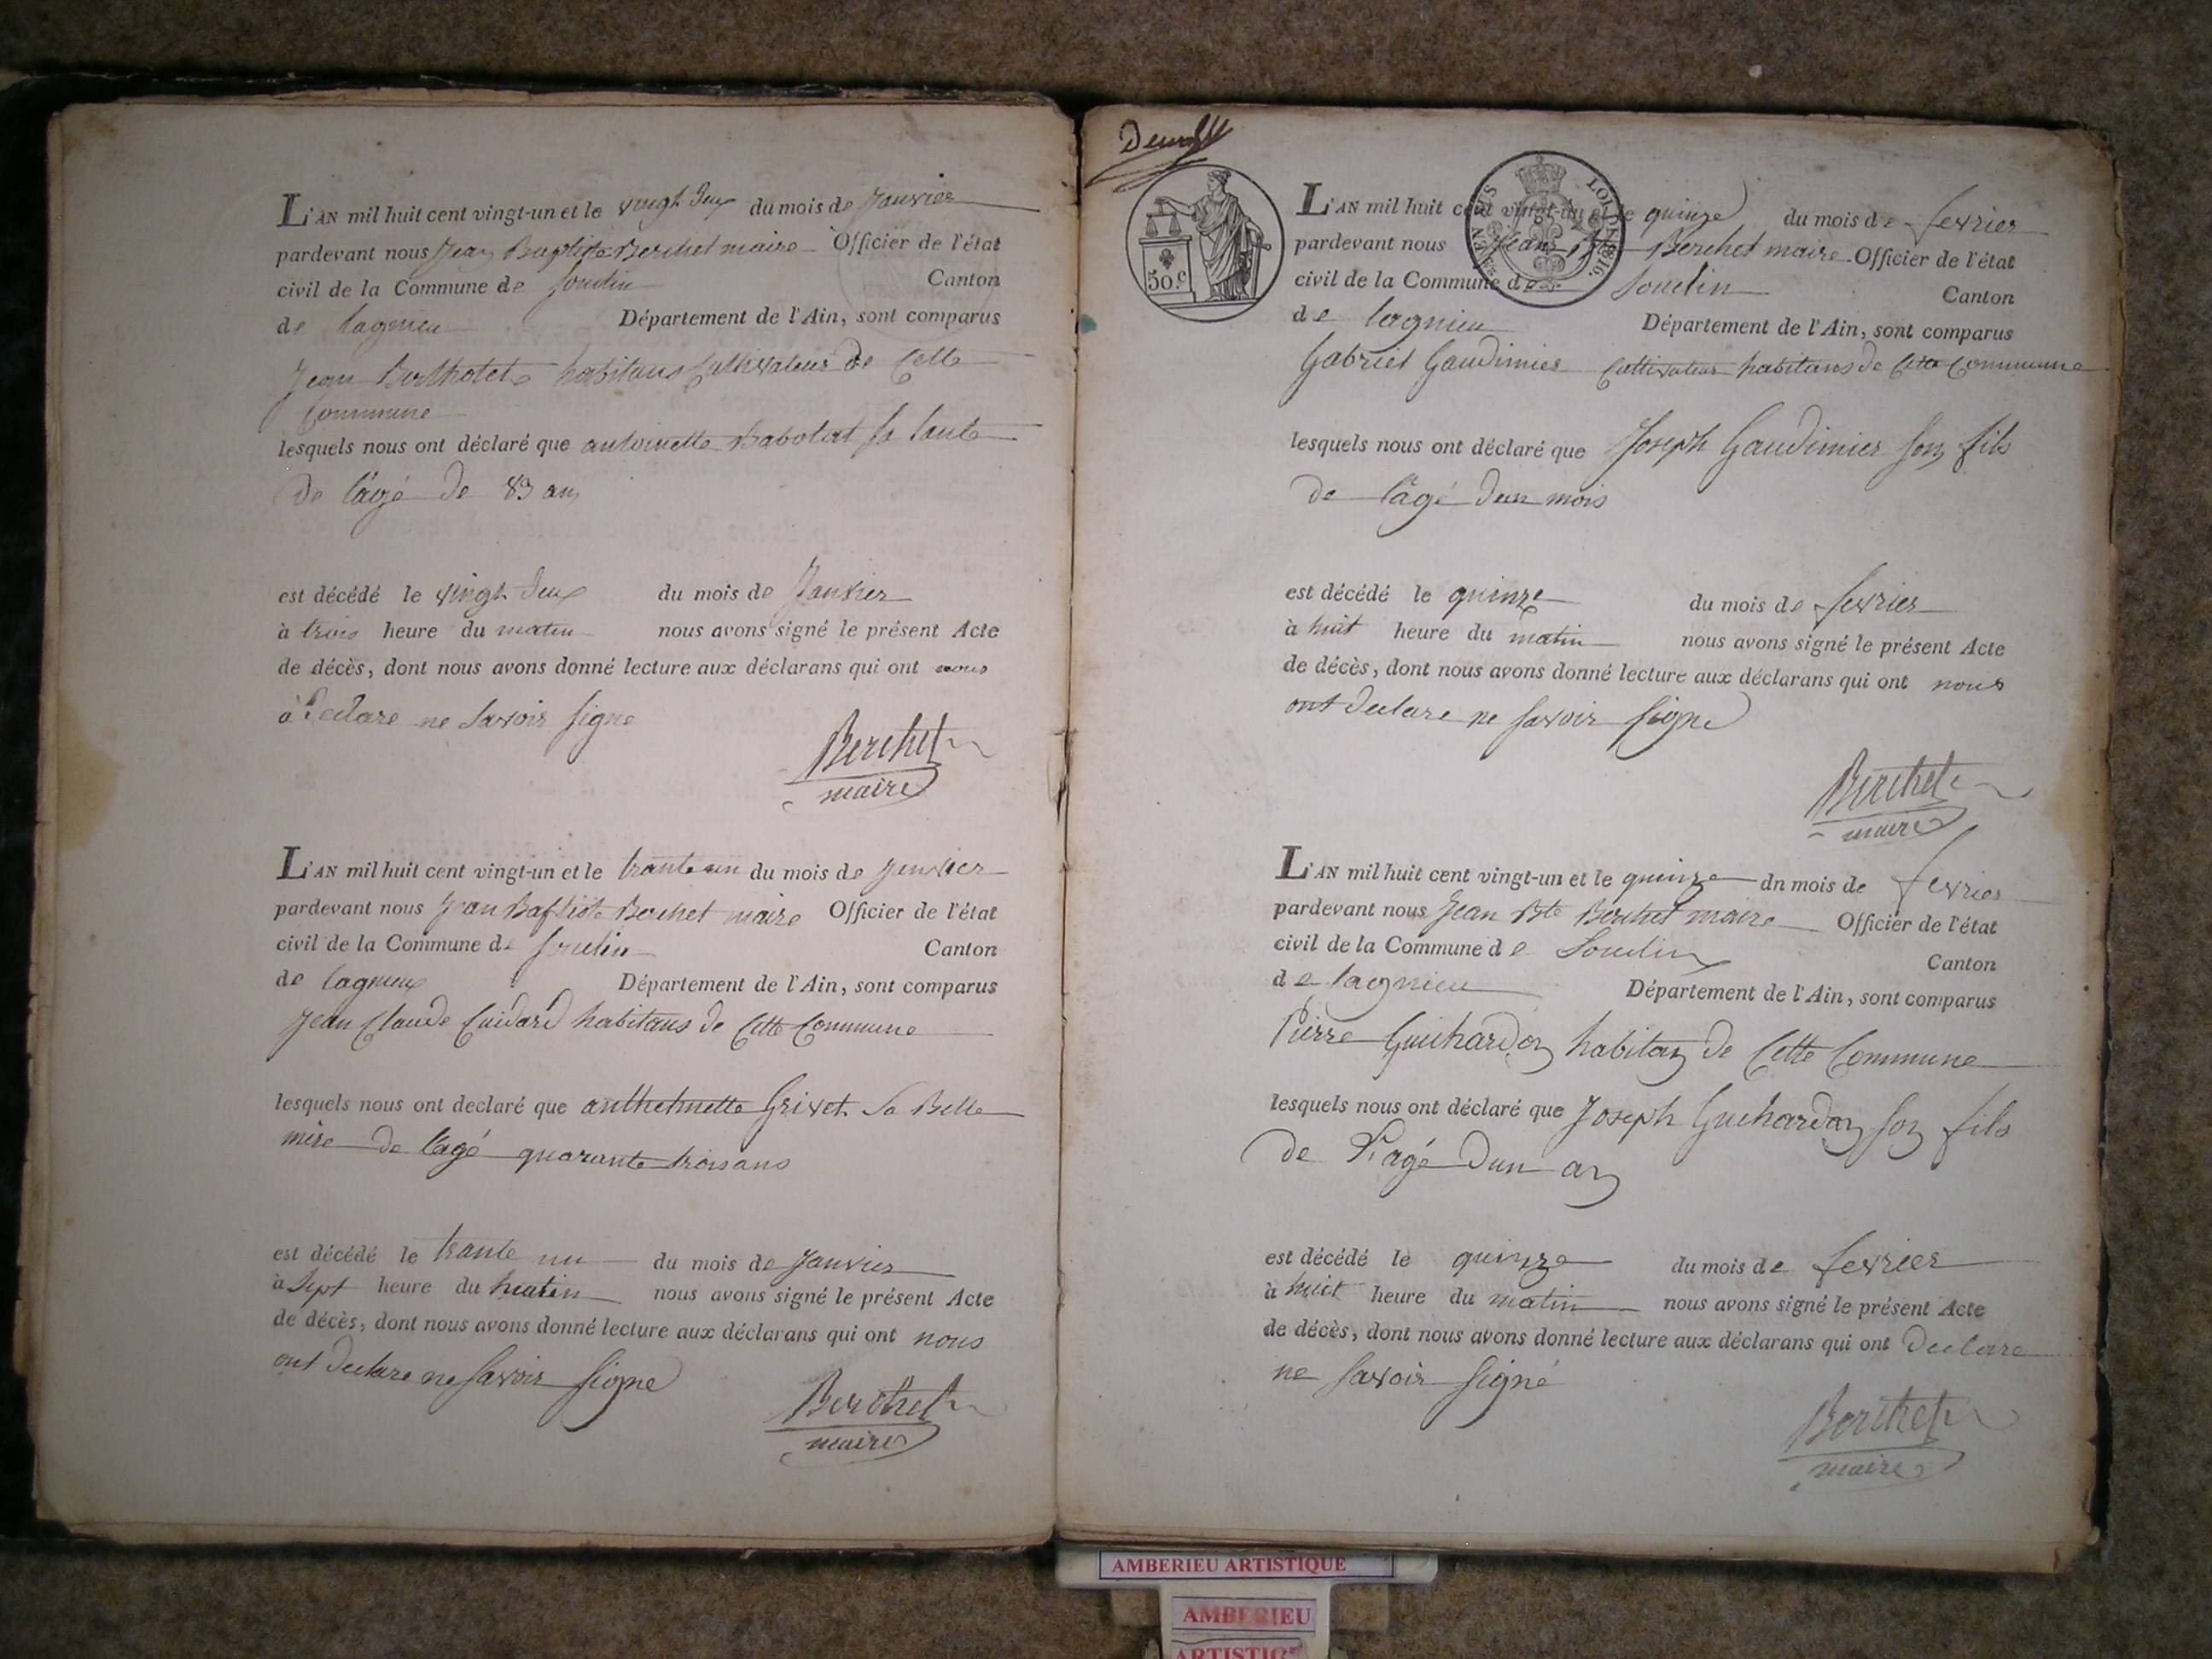 L'AN mil huit cent vingt-un et le vingt deux du mois de Janvier
pardevant nous Jean Baptiste Berthet maire Officier de l'état
civil de la Commune de Soudin Canton
de lagnieu Département de l'Ain, sont comparus
Jean Bertholet habitans Cultivateur de Cette
Commune
lesquels nous ont déclaré que antoinette Babolat sa tante
De l'âgé de 83 ans
est décédé le vingt deux du mois de Janvier
à trois heure du matin nous avons signé le présent Acte
de décès, dont nous avons donné lecture aux déclarans qui ont nous
à Declare ne Savoir signe
Berthet
maire
L'AN mil huit cent vingt-un et le trante un du mois de Janvier
pardevant nous Jean Baptiste Berthet maire Officier de l'état
civil de la Commune de Soudin Canton
de lagnieux Département de l'Ain, sont comparus
Jean Claude Cuidard habitans de Cette Commune
lesquels nous ont declaré que anthelmette Grivet Sa Belle
mère de l'agé quarante trois ans
est décédé le trante un du mois de Janvier
à Sept heure du matin nous avons signé le présent Acte
de décès, dont nous avons donné lecture aux déclarans qui ont nous
ont Declare ne Savoir Signe
Berthet
maire
50.c
LOI DE 1816.
L'AN mil huit cent vingt-un et le quinze du mois de fevrier
pardevant nous Jean Bte Berthet maire Officier de l'état
civil de la Commune de Soudin Canton
de lagnieu Département de l'Ain, sont comparus
Gabriel Gaudimier Cultivateur habitans de Cette Commune
lesquels nous ont déclaré que Joseph Gaudimier Son fils
de l'âgé d'un mois
est décédé le quinze du mois de fevrier
à huit heure du matin nous avons signé le présent Acte
de décès, dont nous avons donné lecture aux déclarans qui ont nous
ont Declare ne Savoir Signe
Berthet
maire
L'AN mil huit cent vingt-un et le quinze dn mois de fevrier
pardevant nous Jean Bte Berthet maire Officier de l'état
civil de la Commune de Soudin Canton
de lagnieu Département de l'Ain, sont comparus
Pierre Guichardon habitan de Cette Commune
lesquels nous ont déclaré que Joseph Guchardon Son fils
de l'agé d'un an
est décédé le quinze du mois de fevrier
à huit heure du matin nous avons signé le présent Acte
de décès, dont nous avons donné lecture aux déclarans qui ont Declare
ne Savoir Signé
Berthet
maire
AMBERIEU ARTISTIQUE
AMBERIEU
ARTISTIQUE